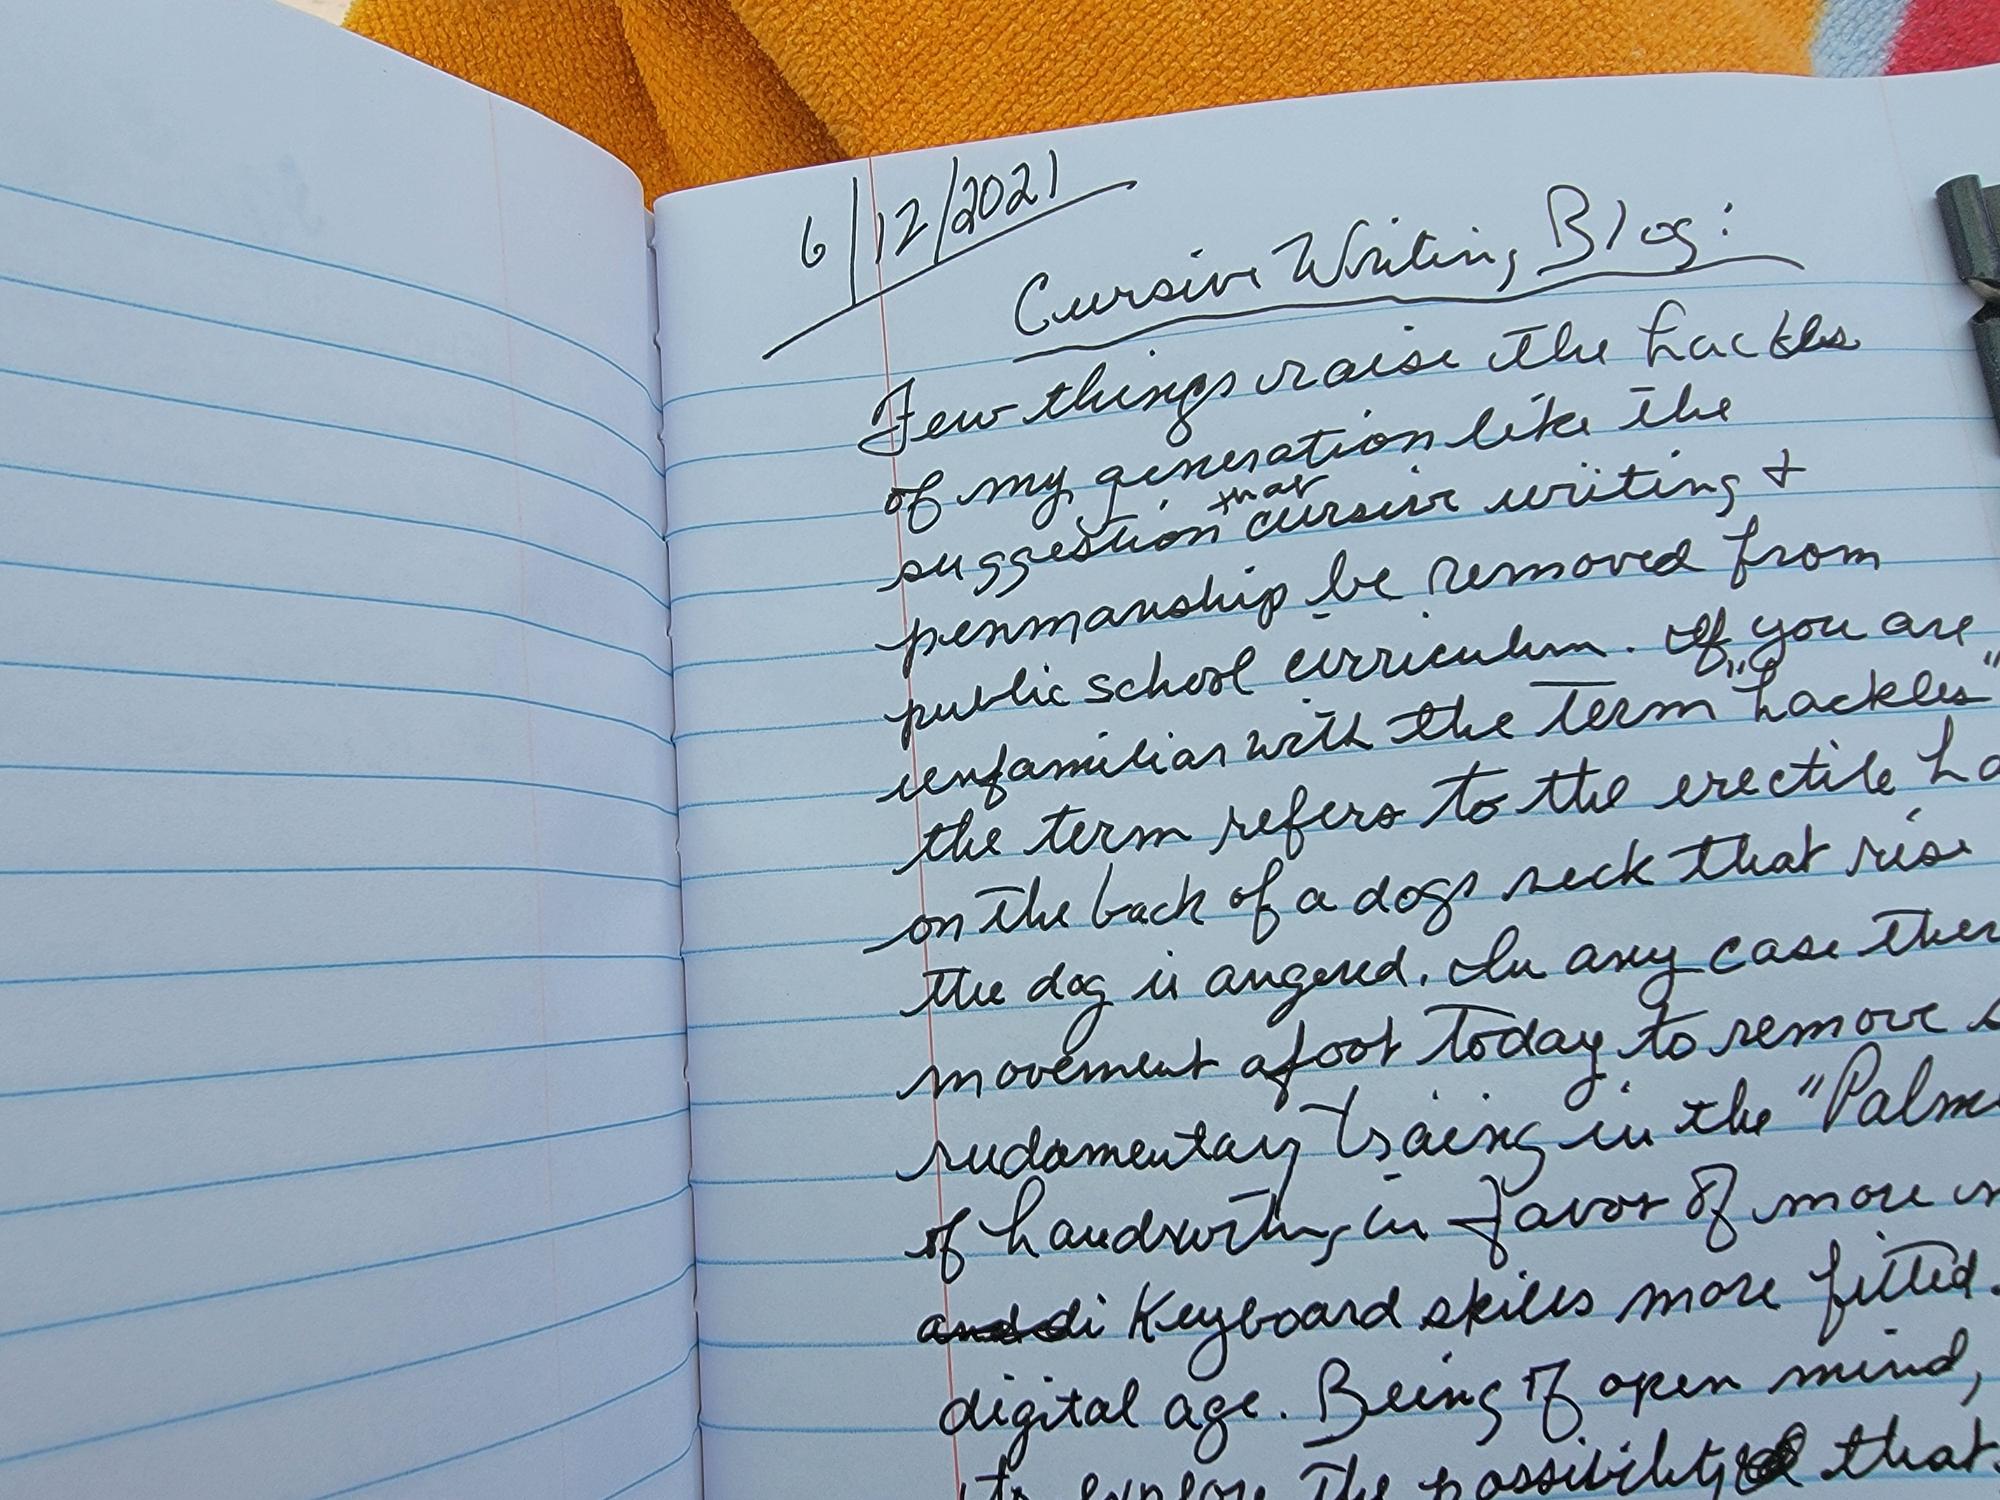 6/12/2021
Cursive Writing Blog:
Few things raise the hackles
of my generation like the
suggestion that cursive writing &
penmanship be removed from
public school cirriculum. If you are
unfamiliar with the term "hackles"
the term refers to the erectile ha
on the back of a dogs neck that rise
the dog is angered. In any case ther
movement afoot today to remove s
rudamentary traing in the "Palme
of handwrting in favor of more
Keyboard skills more fitted
digital age. Being of open mind,
to explore the possibility that